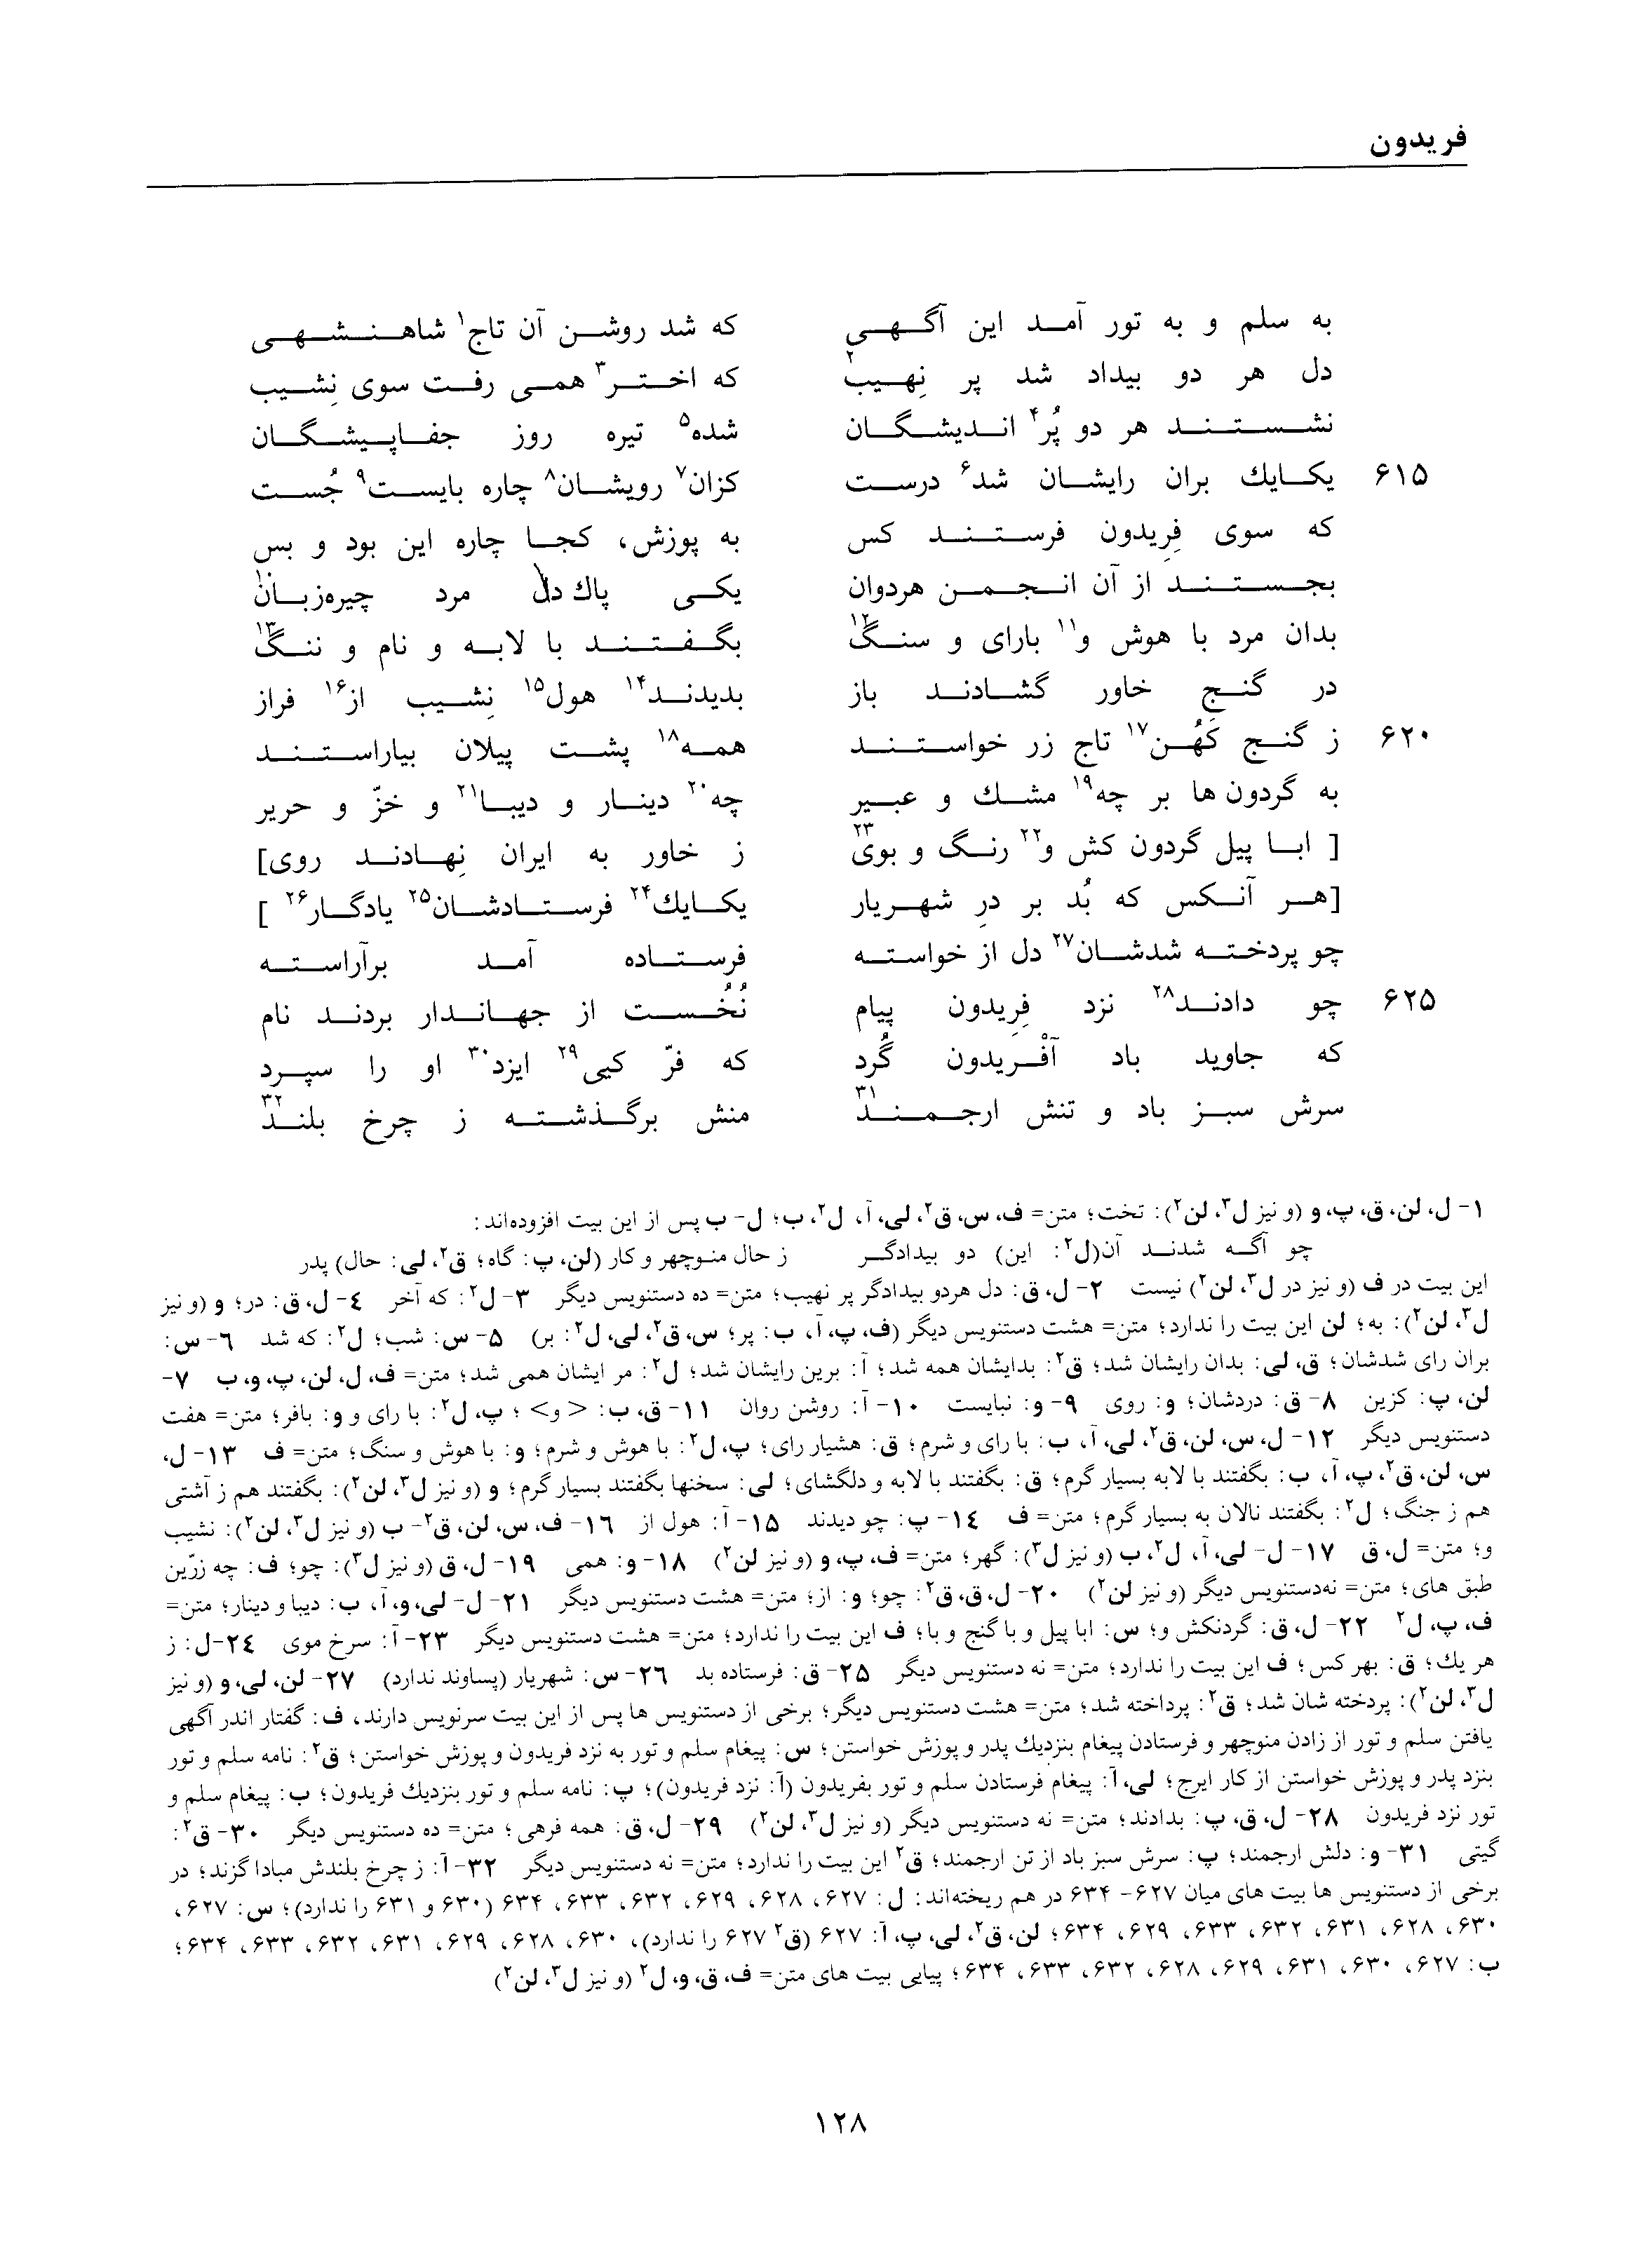 فریدون
به سلم و به تور آمد این آگهی که شد روشن آن تاج۱ شاهنشهی
دل هر دو بیداد شد پر نِهیب۲ که اختر۳ همی رفت سوی نِشیب
نشستند هر دو پُر۴ اندیشگان شده۵ تیره روز جفاپیشگان
۶۱۵ یکایك بران رایشان شد۶ درست کزان۷ رویشان۸ چاره بایست۹ جُست
که سوی فِریدون فرستند کس به پوزش، کجا چاره این بود و بس
بجستند از آن انجمن هردوان یکی پاك دل مرد چیره‌زبان۱۰
بدان مرد با هوش و۱۱ بارای و سنگ۱۲ بگفتند با لابه و نام و ننگ۱۳
در گنج خاور گشادند باز بدیدند۱۴ هول۱۵ نِشیب از۱۶ فراز
۶۲۰ ز گنج کَهُن۱۷ تاج زر خواستند همه۱۸ پشت پیلان بیاراستند
به گردون ها بر چه۱۹ مشك و عبیر چه۲۰ دینار و دیبا۲۱ و خزّ و حریر
[ ابا پیل گردون کش و۲۲ رنگ و بوی۲۳ ز خاور به ایران نِهادند روی]
[هر آنکس که بُد بر درِ شهریار یکایك۲۴ فرستادشان۲۵ یادگار۲۶ ]
چو پردخته شدشان۲۷ دل از خواسته فرستاده آمد برآراسته
۶۲۵ چو دادند۲۸ نزد فِرِیدون پیام نُخُست از جهاندار بردند نام
که جاوید باد آفْریدون گُرد که فرّ کیی۲۹ ایزد۳۰ او را سپرد
سرش سبز باد و تنش ارجمند۳۱ منش برگذشته ز چرخ بلند۳۲
۱- ل، لن، ق، پ، و (و نیز ل۳، لن۲): تخت؛ متن= ف، س، ق۲، لی، آ، ل۲، ب؛ ل- ب پس از این بیت افزوده‌اند:
چو آگه شدند آن(ل۲: این) دو بیدادگر ز حال منوچهر و کار (لن، پ: گاه؛ ق۲، لی: حال) پدر
این بیت در ف (و نیز در ل۳، لن۲) نیست ۲- ل، ق: دل هردو بیدادگر پر نهیب؛ متن= ده دستنویس دیگر ۳- ل۲: که آخر ۴- ل، ق: در؛ و (و نیز
ل۳، لن۲): به؛ لن این بیت را ندارد؛ متن= هشت دستنویس دیگر (ف، پ، آ، ب: پر؛ س، ق۲، لی، ل۲: بر) ۵- س: شب؛ ل۲: که شد ۶- س:
بران رای شدشان؛ ق، لی: بدان رایشان شد؛ ق۲: بدایشان همه شد؛ آ: برین رایشان شد؛ ل۲: مر ایشان همی شد؛ متن= ف، ل، لن، پ، و، ب ۷-
لن، پ: کزین ۸- ق: دردشان؛ و: روی ۹- و: نبایست ۱۰- آ: روشن روان ۱۱- ق، ب: <و> ؛ پ، ل۲: با رای و و: بافر؛ متن= هفت
دستنویس دیگر ۱۲- ل، س، لن، ق۲، لی، آ، ب: با رای و شرم؛ ق: هشیار رای؛ پ، ل۲: با هوش و شرم؛ و: با هوش و سنگ؛ متن= ف ۱۳- ل،
س، لن، ق۲، پ، آ، ب: بگفتند با لابه بسیار گرم؛ ق: بگفتند با لابه و دلگشای؛ لی: سخنها بگفتند بسیار گرم؛ و (و نیز ل۳، لن۲): بگفتند هم ز آشتی
هم ز جنگ؛ ل۲: بگفتند نالان به بسیار گرم؛ متن= ف ۱۴- پ: چو دیدند ۱۵- آ: هول از ۱۶- ف، س، لن، ق۲- ب (و نیز ل۳، لن۲): نشیب
و؛ متن= ل، ق ۱۷- ل- لی، آ، ل۲، ب (و نیز ل۳): گهر؛ متن= ف، پ، و (و نیز لن۲) ۱۸- و: همی ۱۹- ل، ق (و نیز ل۳): چو؛ ف: چه زرّین
طبق های؛ متن= نه‌دستنویس دیگر (و نیز لن۲) ۲۰- ل، ق، ق۲: چو؛ و: از؛ متن= هشت دستنویس دیگر ۲۱- ل- لی، و، آ، ب: دیبا و دینار؛ متن=
ف، پ، ل۲ ۲۲- ل، ق: گردنکش و؛ س: ابا پیل و با گنج و با؛ ف این بیت را ندارد؛ متن= هشت دستنویس دیگر ۲۳- آ: سرخ موی ۲۴-ل: ز
هر یك؛ ق: بهر کس؛ ف این بیت را ندارد؛ متن= نه دستنویس دیگر ۲۵- ق: فرستاده بد ۲۶- س: شهریار (پساوند ندارد) ۲۷- لن، لی، و (و نیز
ل۳، لن۲): پردخته شان شد؛ ق۲: پرداخته شد؛ متن= هشت دستنویس دیگر؛ برخی از دستنویس ها پس از این بیت سرنویس دارند، ف: گفتار اندر آگهی
یافتن سلم و تور از زادن منوچهر و فرستادن پیغام بنزدیك پدر و پوزش خواستن؛ س: پیغام سلم و تور به نزد فریدون و پوزش خواستن؛ ق۲: نامه سلم و تور
بنزد پدر و پوزش خواستن از کار ایرج؛ لی، آ: پیغام فرستادن سلم و تور بفریدون (آ: نزد فریدون)؛ پ: نامه سلم و تور بنزدیك فریدون؛ ب: پیغام سلم و
تور نزد فریدون ۲۸- ل، ق، پ: بدادند؛ متن= نه دستنویس دیگر (و نیز ل۳، لن۲) ۲۹- ل، ق: همه فرهی؛ متن= ده دستنویس دیگر ۳۰- ق۲:
گیتی ۳۱- و: دلش ارجمند؛ پ: سرش سبز باد از تن ارجمند؛ ق۲ این بیت را ندارد؛ متن= نه دستنویس دیگر ۳۲- آ: ز چرخ بلندش مبادا گزند؛ در
برخی از دستنویس ها بیت های میان ۶۲۷- ۶۳۴ در هم ریخته‌اند: ل: ۶۲۷، ۶۲۸، ۶۲۹، ۶۳۲، ۶۳۳، ۶۳۴ (۶۳۰ و ۶۳۱ را ندارد)؛ س: ۶۲۷،
۶۳۰، ۶۲۸، ۶۳۱، ۶۳۲، ۶۳۳، ۶۲۹، ۶۳۴؛ لن، ق۲، لی، پ، آ: ۶۲۷ (ق۲ ۶۲۷ را ندارد)، ۶۳۰، ۶۲۸، ۶۲۹، ۶۳۱، ۶۳۲، ۶۳۳، ۶۳۴؛
ب: ۶۲۷، ۶۳۰، ۶۳۱، ۶۲۹، ۶۲۸، ۶۳۲، ۶۳۳، ۶۳۴؛ پیاپی بیت های متن= ف، ق، و، ل۲ (و نیز ل۳، لن۲)
۱۲۸